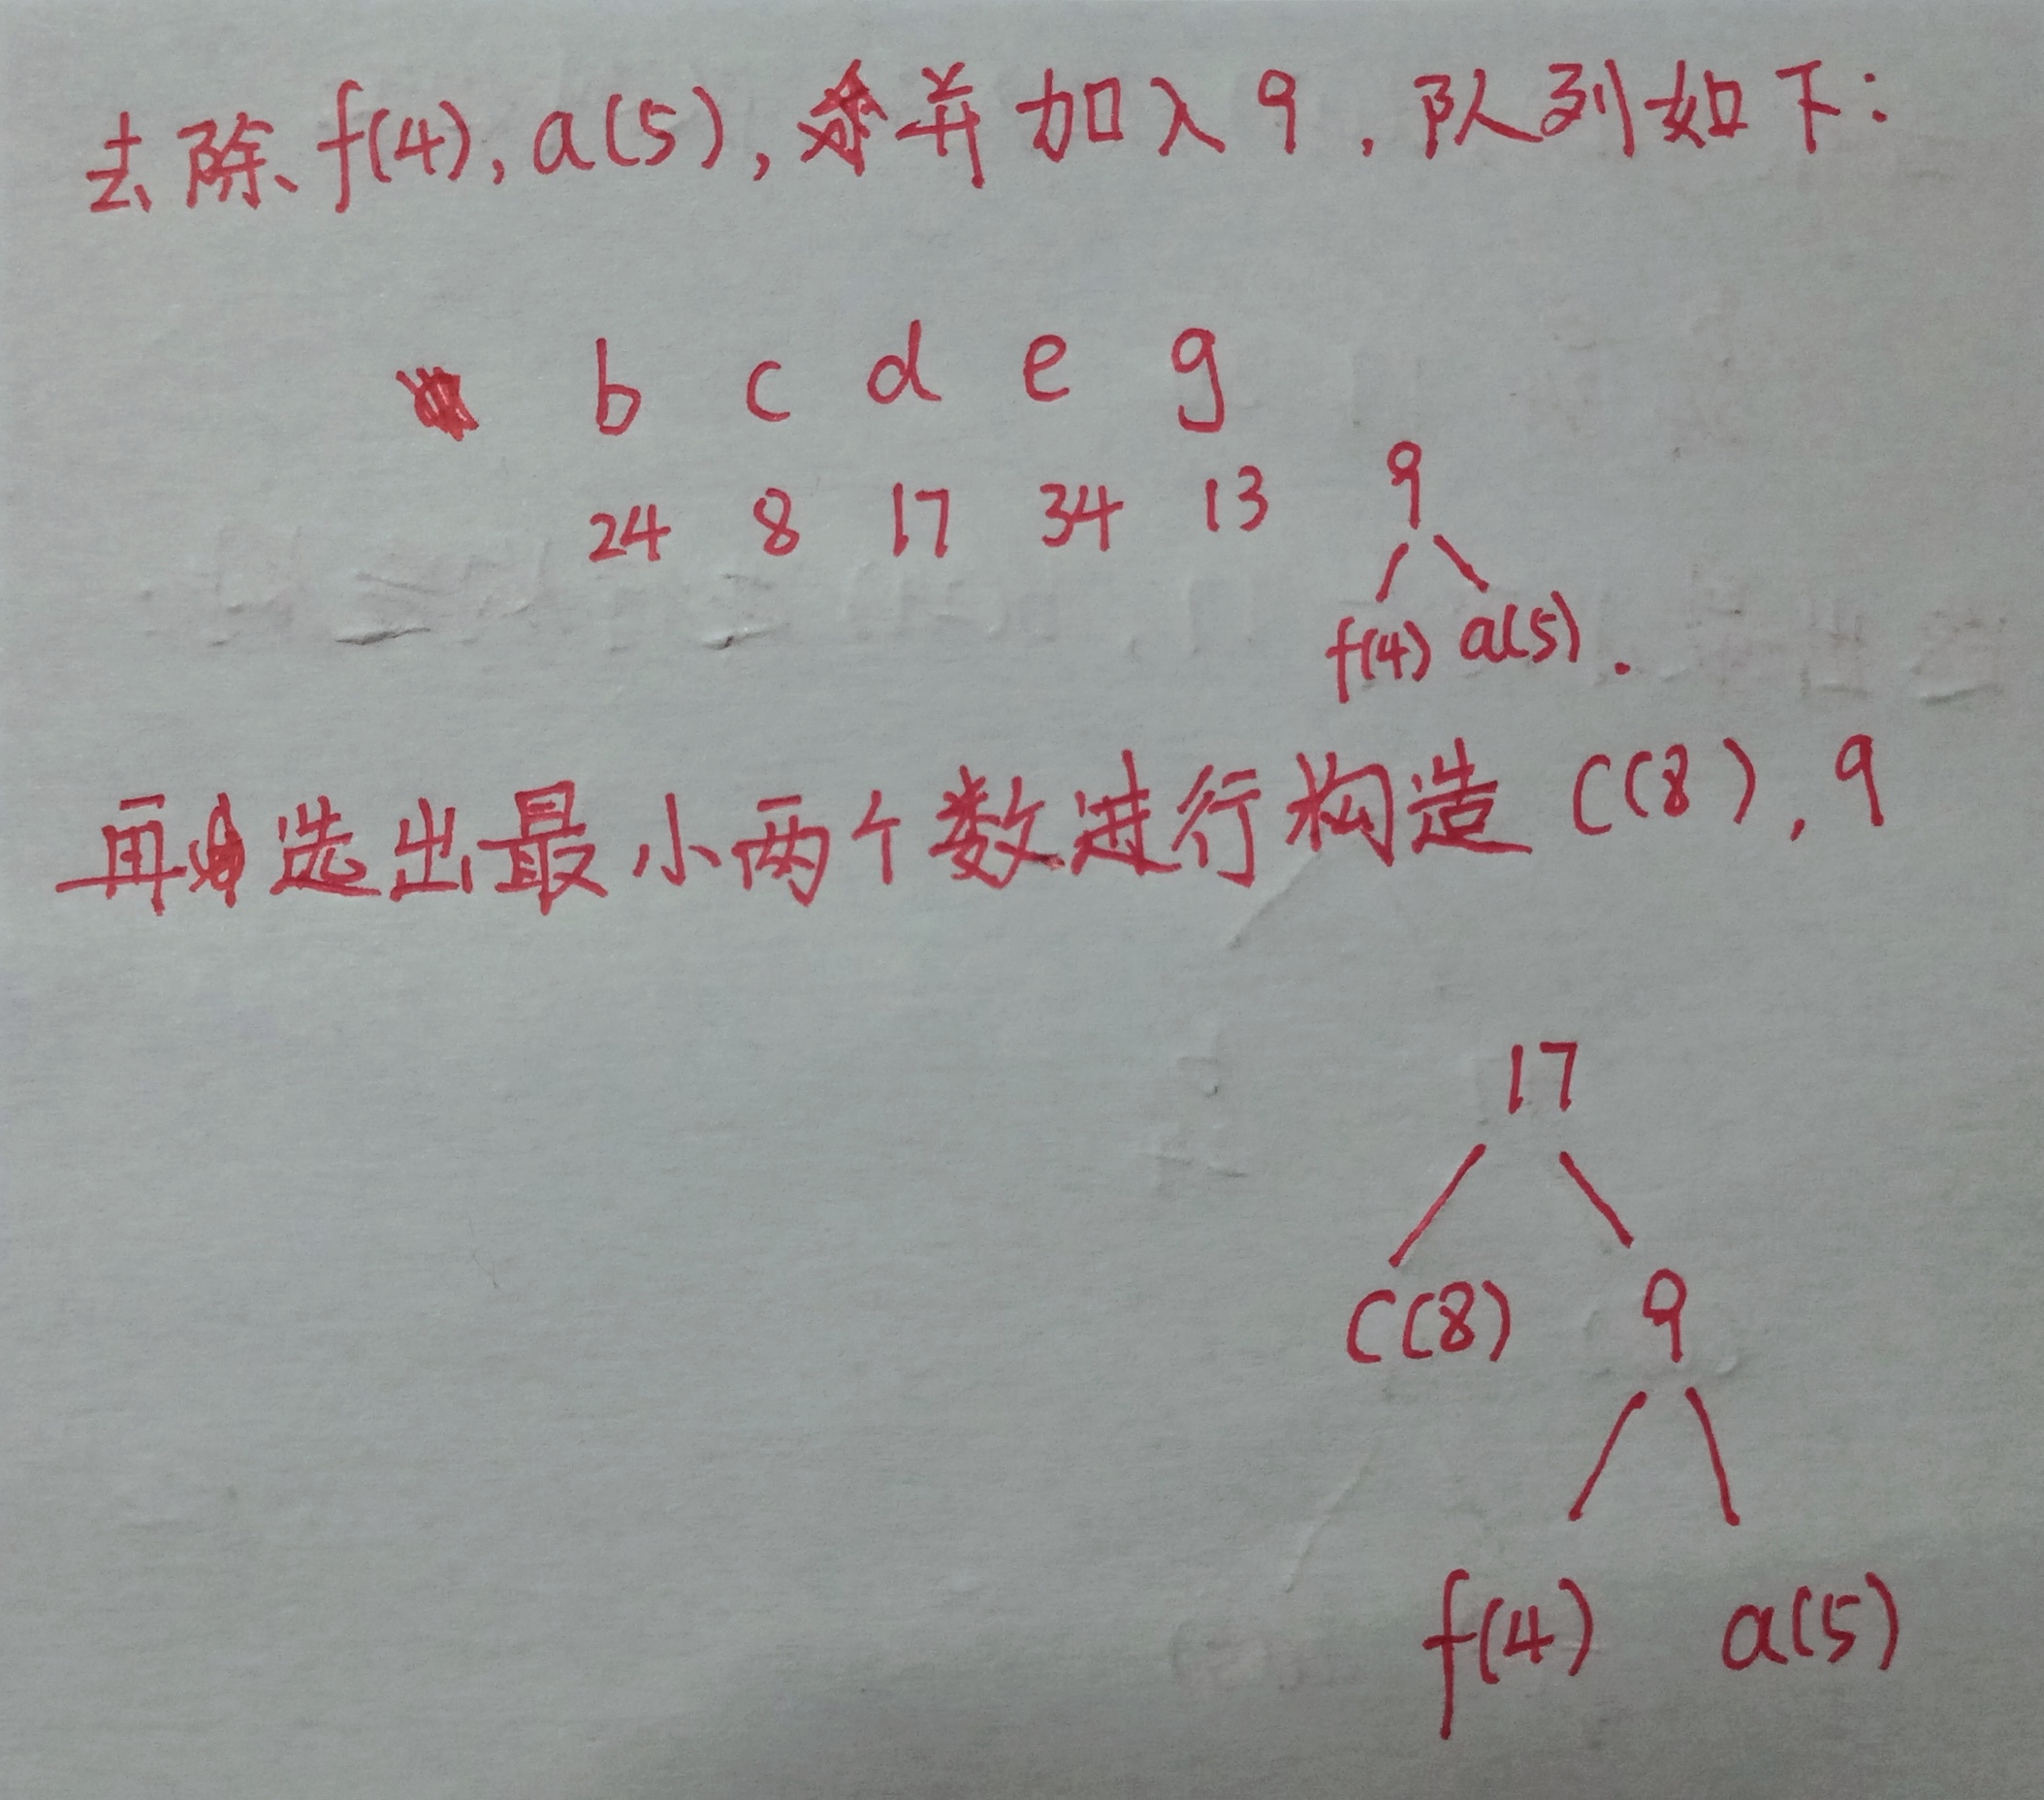 去除f(4), a(5), 并加入9. 队列如下:
b c d e g
24 8 17 34 13 9
f(4) a(5).
再选出最小两个数进行构造 C(8), 9
17
C(8) 9
f(4) a(5)